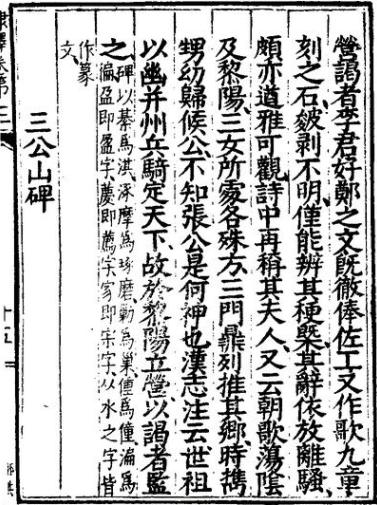 營謁者李君好鄭之文既徹俸佐工又作歌九章
刻之石皴剥不明僅能辨其梗槩其辭依放離騷
頗亦道雅可觀詩中再稱其夫人又云朝歌蕩陰
及黎陽三女所處各殊方三門鼎列推其鄉時攜
甥幼歸候公不知張公是何神也漢志注云世祖
以幽并州立騎定天下故於黎陽立營以謁者監
之碑以綦為淇涿摩為琢磨勦為巢僮為僮漏為
漏盈即盈字薦即薦字家即宗字从水之字皆
作篆
文
三公山碑
隸釋卷第三
十五